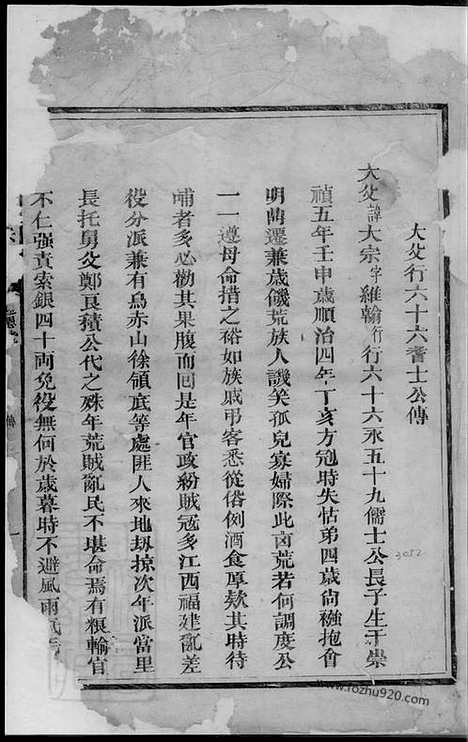 大父行六十六耆士公傳
大父諱大宗字維翰行行六十六永五十九儒士公長子生于崇
禎五年壬申歲順治四年丁亥方冠時失怙弟四歲尙襁抱會
明鼎遷兼歲饑荒族人譏笑孤兒寡婦際此凶荒若何調度公
一一遵母命措之裕如族戚弔客悉從俗例酒食厚欵其時待
哺者多必勸其果腹而回是年官政紛賊冦多江西福建亂差
役分派兼有烏赤山徐領底等處匪人來地刼掠次年派當里
長托舅父鄭良積公代之殊年荒賊亂民不堪命焉有粮輸官
不仁強責索銀四十両免役無何於歲暮時不避風雨
3052
www.rozhu920.com